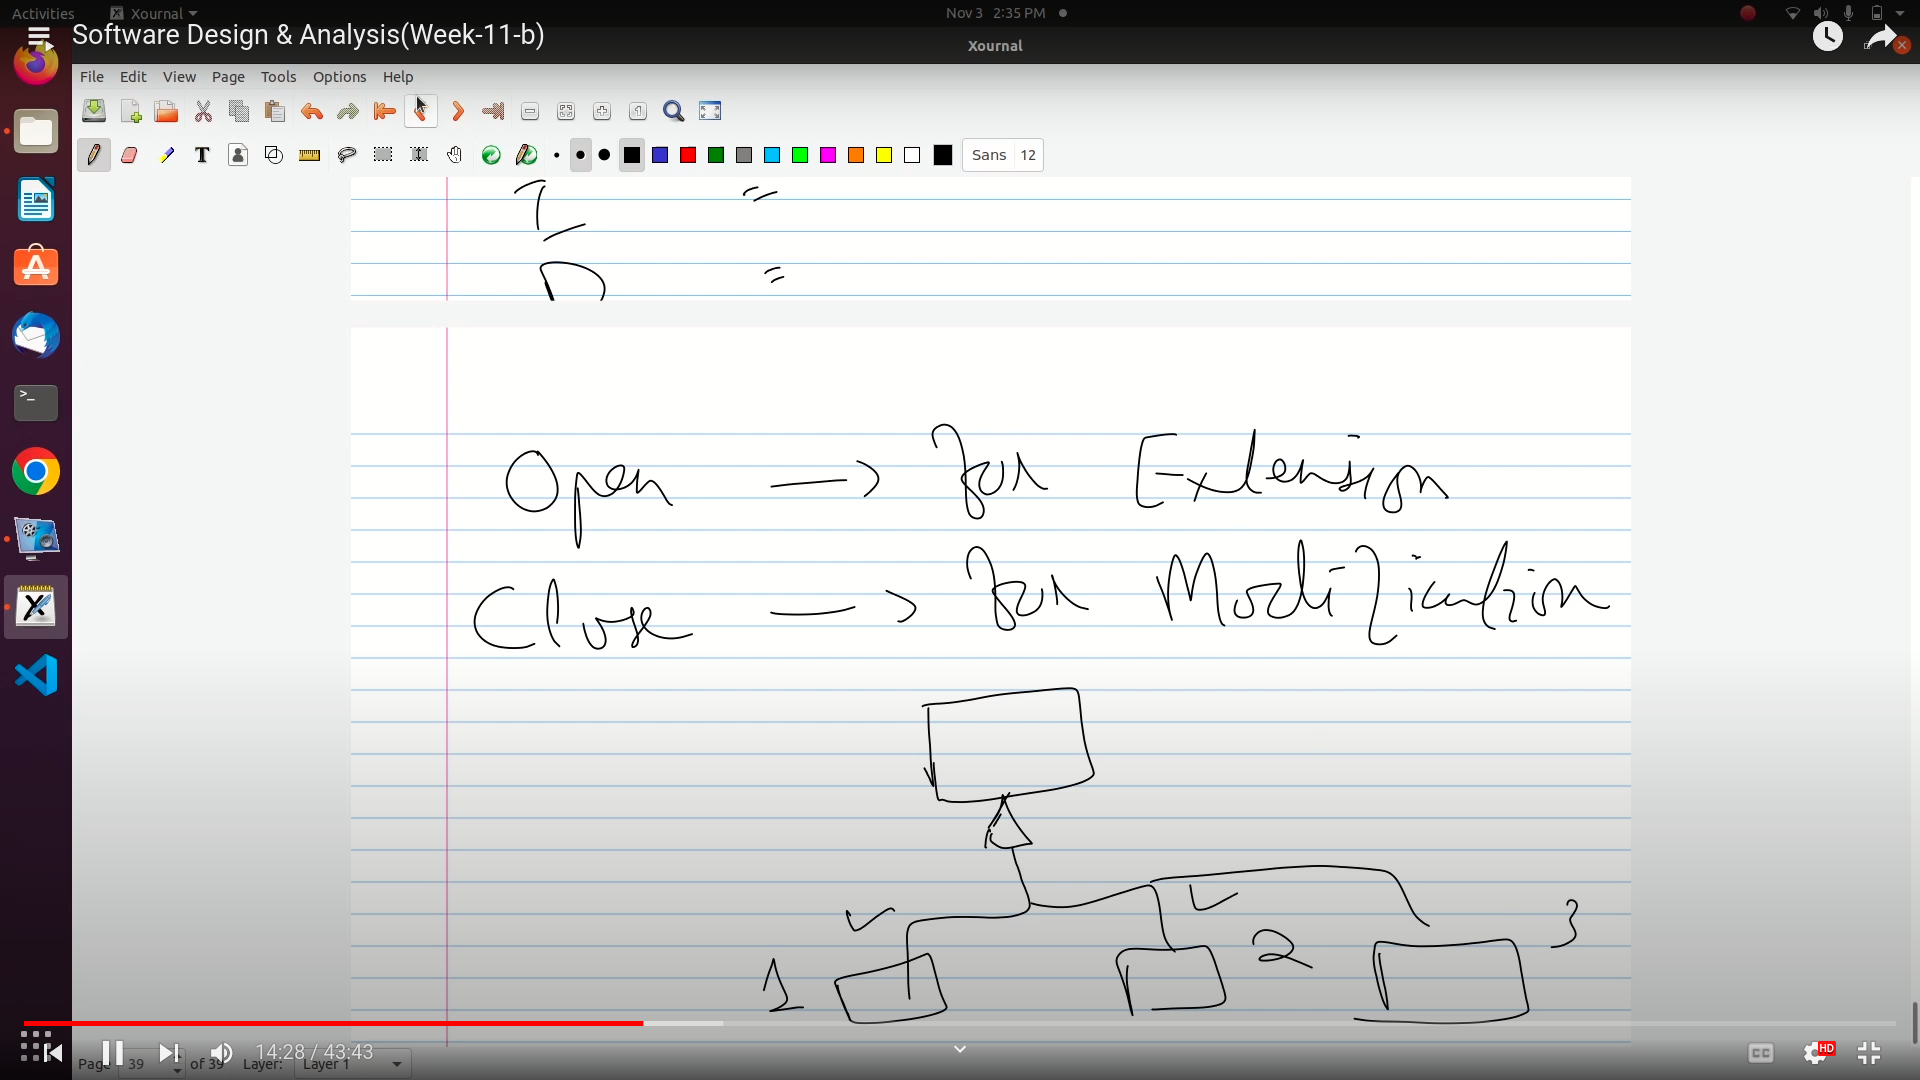 Activities Xournal Nov 3 2:35 PM
Software Design & Analysis(Week-11-b)
Xournal
File Edit View Page Tools Options Help
Sans 12
I =
D =
Open → for Extension
Close → for Modification
1 2 3
14:28 / 43:43
Page 39 of 39 Layer: Layer 1
CC HD